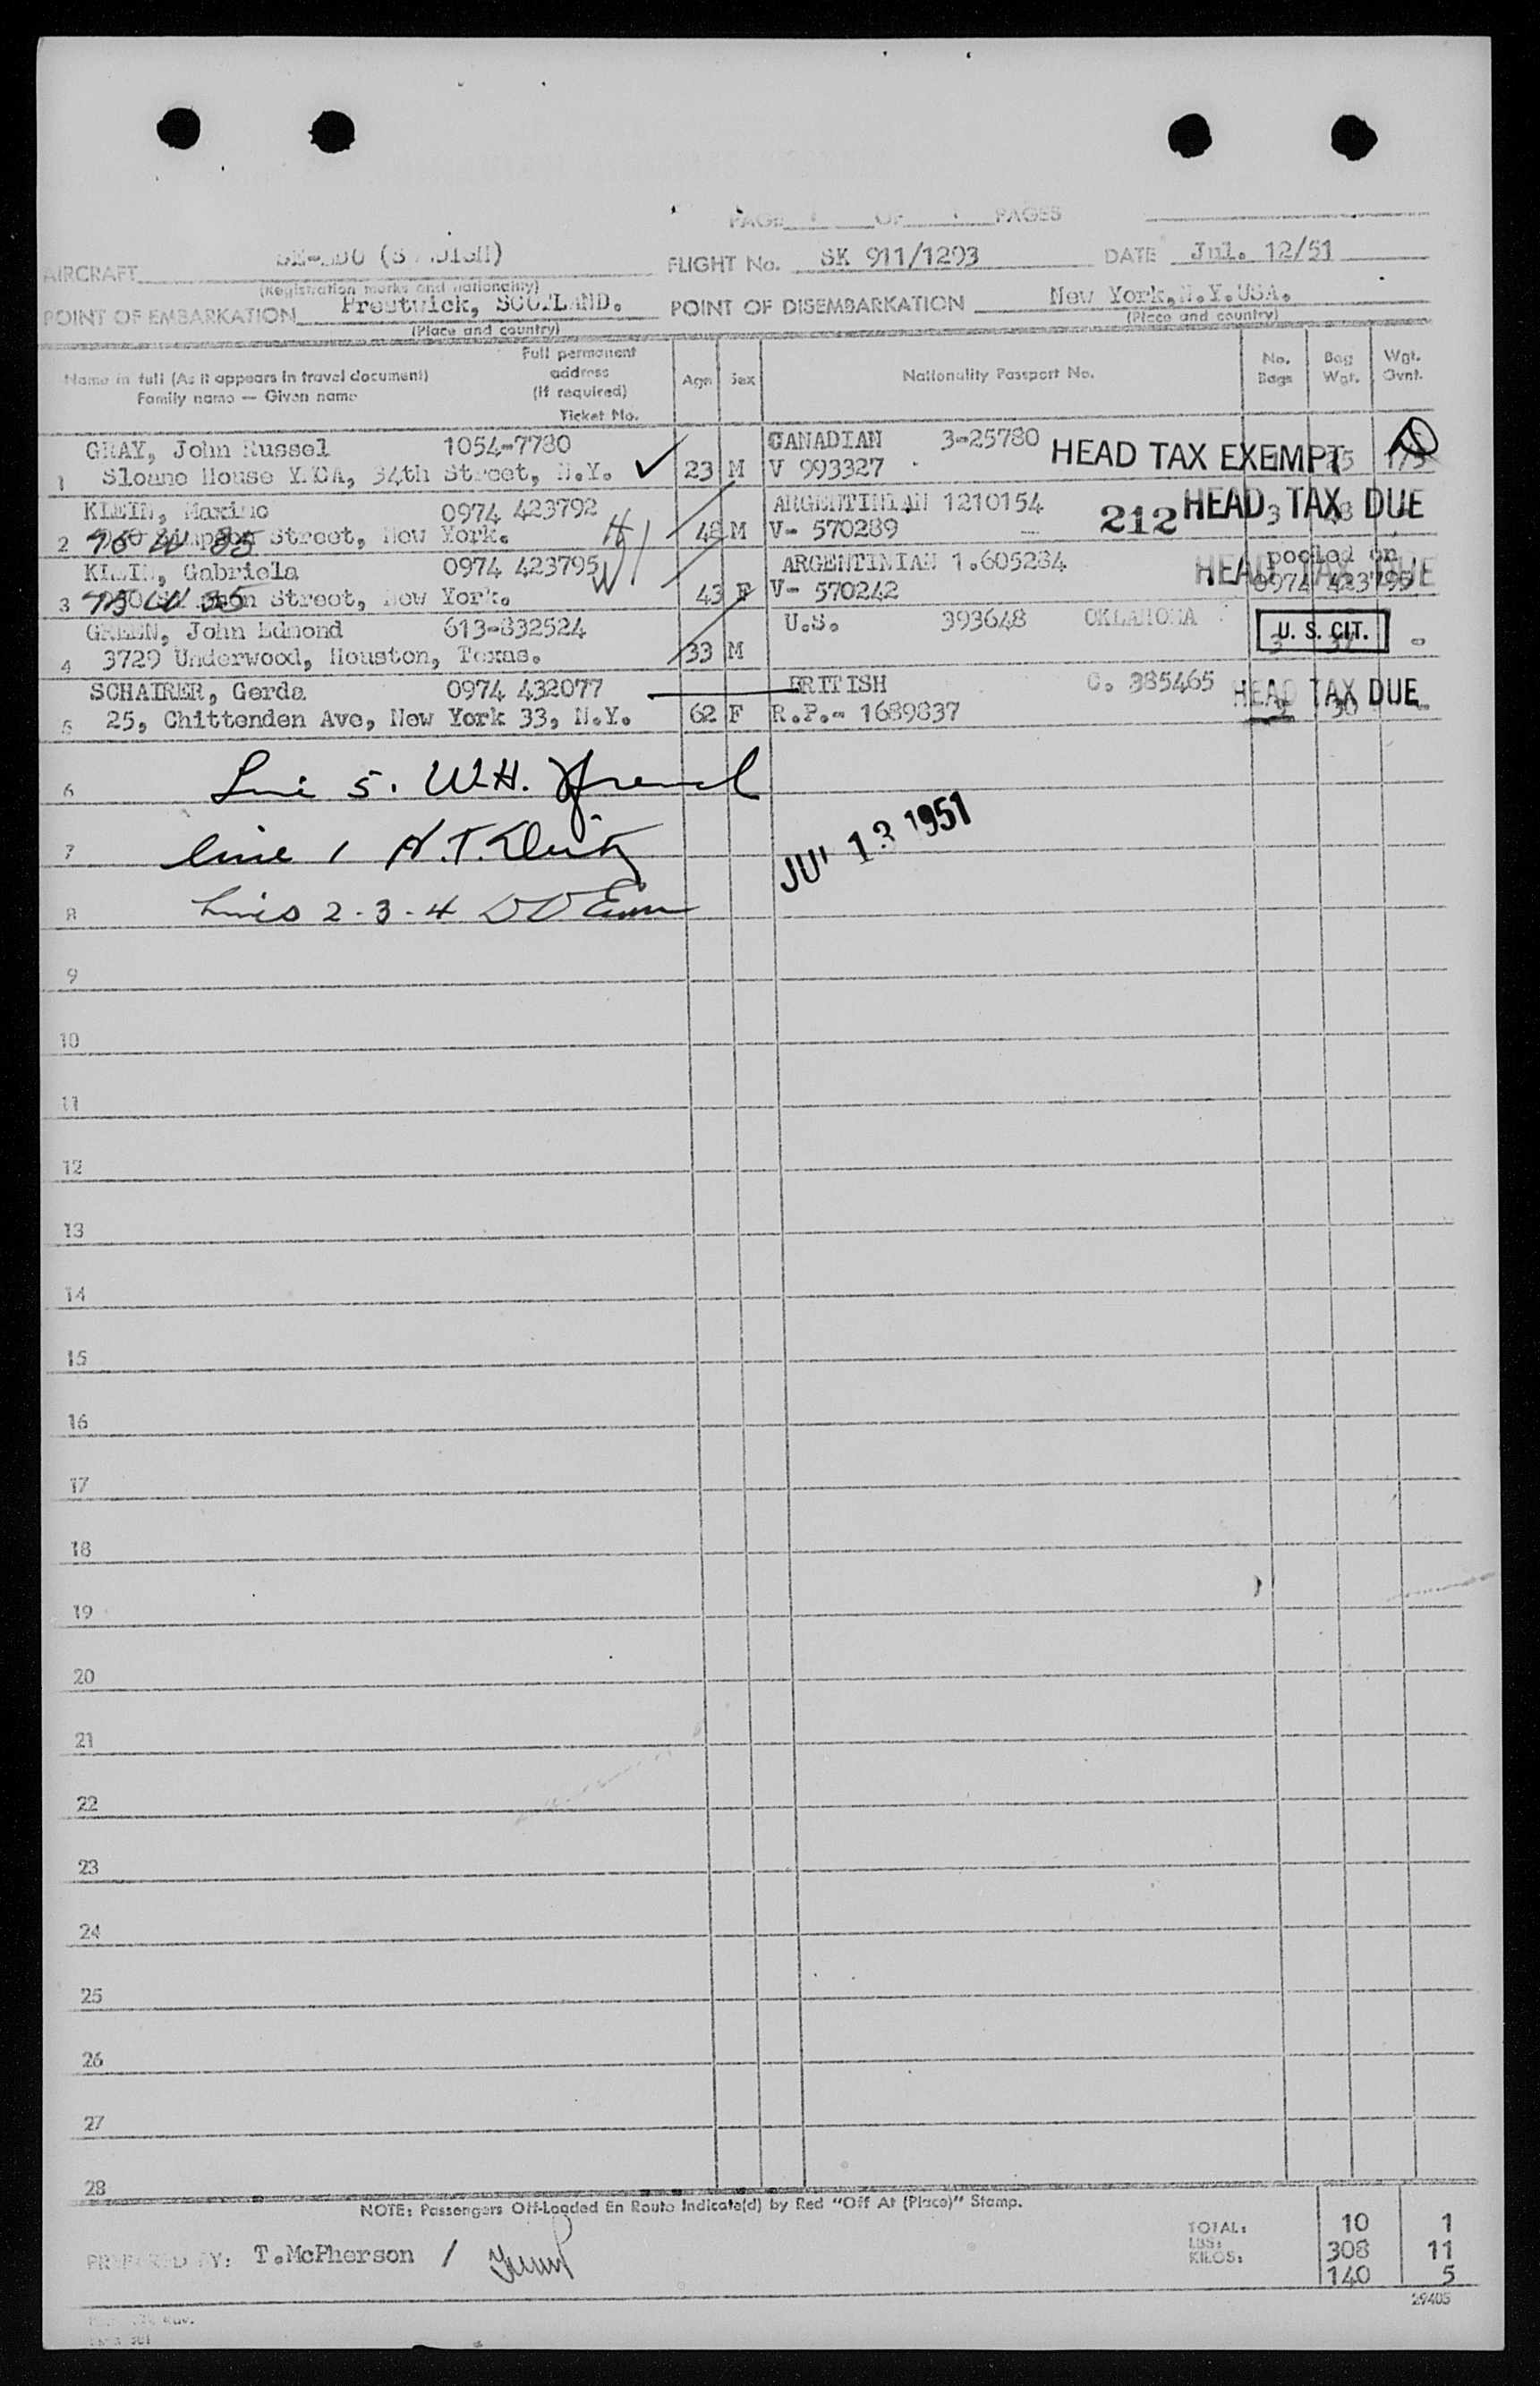 PAGE OF PAGES
AIRCRAFT FLIGHT No. SK 911/1203 DATE Jul. 12/51
(Registration marks and nationality)
POINT OF EMBARKATION Prestwick, SCOTLAND. POINT OF DISEMBARKATION New York, N.Y. USA.
(Place and country) (Place and country)
Name in full (As it appears in travel document)
Family name — Given name
Full permanent
address
(if required)
Ticket No.
Age Sex Nationality Passport No. No. Bags Bag Wgt. Wgt. Ovnt.
GRAY, John Russel 1054-7780 CANADIAN 3-25780 HEAD TAX EXEMPT
1 Sloane House Y.M.C.A, 34th Street, N.Y. 23 M V 993327
KLEIN, Maximo 0974 423792 ARGENTINIAN 1210154 212 HEAD TAX DUE
2 Street, New York. 48 M V- 570289 3
KLEIN, Gabriela 0974 423795 ARGENTINIAN 1.605284 HEAD TAX DUE pooled on
3 Street, New York. 43 F V- 570242 0974 423795
GREEN, John Edmond 613-832524 U.S. 393648 OKLAHOMA U. S. CIT.
4 3729 Underwood, Houston, Texas. 33 M 3 37 -
SCHAIRER, Gerda 0974 432077 BRITISH C. 385465 HEAD TAX DUE
5 25, Chittenden Ave, New York 33, N.Y. 62 F R.P.- 1689837 2 30 -
6 Line 5. W.H.
7 line 1
JUL 13 1951
8 Lines 2-3-4
9
10
11
12
13
14
15
16
17
18
19
20
21
22
23
24
25
26
27
28
NOTE: Passengers Off-Loaded En Route Indicate(d) by Red "Off At (Place)" Stamp.
TOTAL: 10 1
LBS: 308 11
KILOS: 140 5
PREPARED BY: T.McPherson /
29405